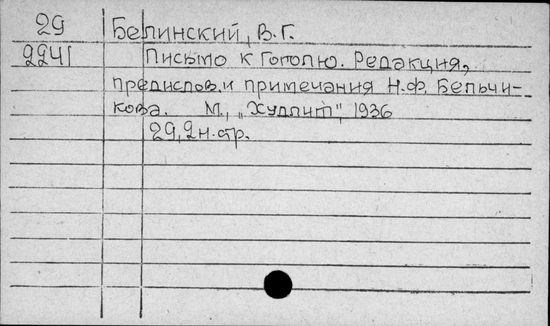 29 Белинский, В.Г.
2241 Письмо к Гоголю. Редакция,
предислов. и примечания Н.Ф. Бельчи-
кова. М., „Худлит", 1936
29, 2 н. стр.